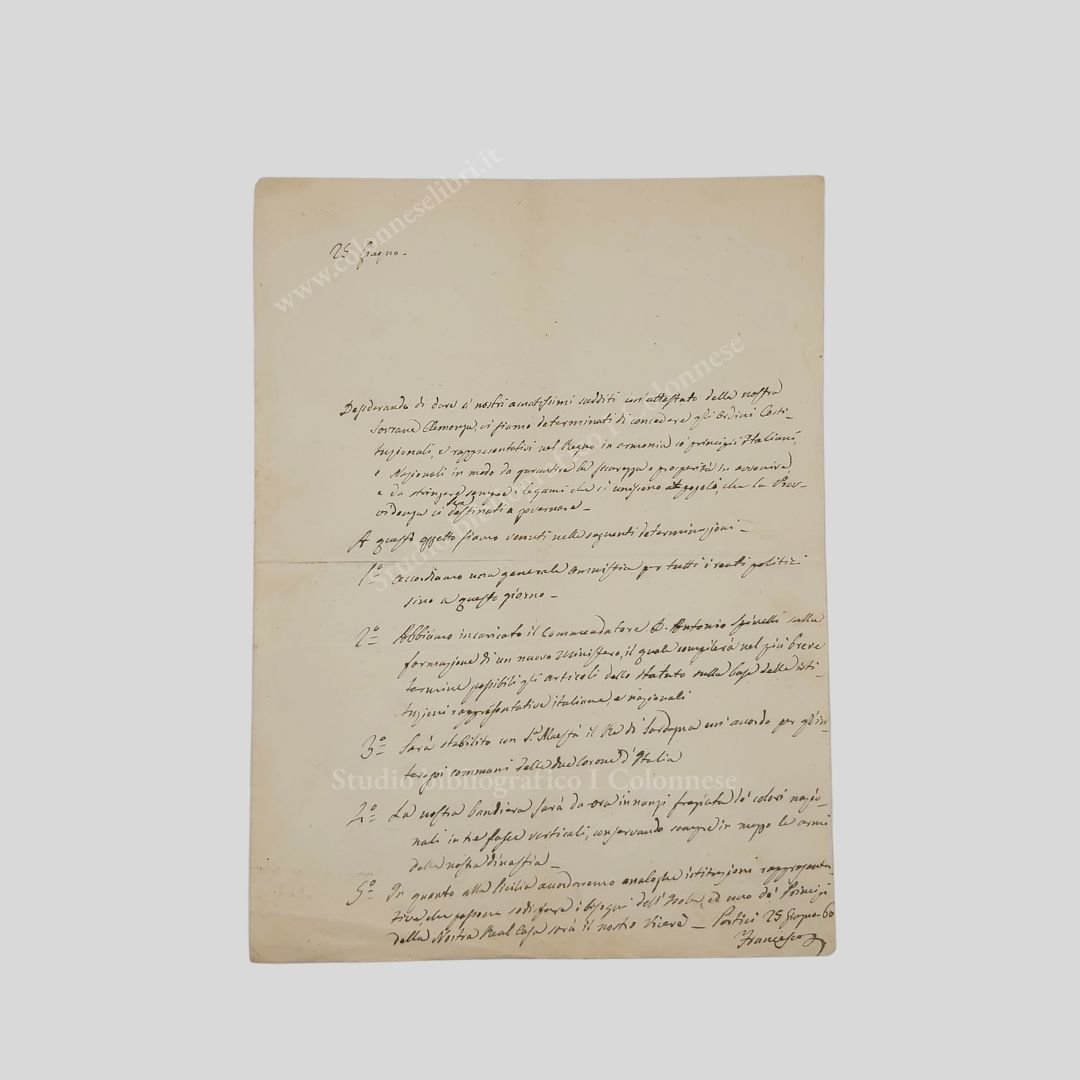 www.colonneselibri.it
25 Giugno -
Desiderando di dare a' nostri amatissimi sudditi un'attestato della nostra
Sovrana Clemenza, ci siamo determinati di concedere gli ordini Costi-
tuzionali, e rappresentativi nel Regno in armonia co' principii Italiani,
e Nazionali in modo da garantire la sicurezza e prosperità in avvenire,
e da stringere sempre i legami che ci uniscono al popolo, che la Prov-
videnza ci ha destinati a governare -
A questo oggetto siamo venuti nelle seguenti determinazioni -
1º accordiamo una generale amnistia per tutti i reati politici
sino a questo giorno -
2º Abbiamo incaricato il Commendatore D. Antonio Spinelli sulla
formazione di un nuovo Ministero, il quale compilerà nel più breve
termine possibili gli articoli dello Statuto sulla base delle isti-
tuzioni rappresentative italiane, e nazionali
3º Sarà stabilito con S. Maestà il Re di Sardegna un'accordo per gl'in-
teressi communi delle due Corone d'Italia
4º La nostra bandiera sarà da ora innanzi fregiata de' colori nazio-
nali in tre fasce verticali, conservando sempre in mezzo le armi
della nostra dinastia -
5º In quanto alla Sicilia accorderemo analoghe istituzioni rappresenta-
tive che possono sodisfare i bisogni dell'Isola, ed uno de' Principi
della Nostra Real Casa sarà il nostro Vicerè - Portici 25 Giugno 60
Francesco
Studio bibliografico I Colonnese
Studio bibliografico I Colonnese